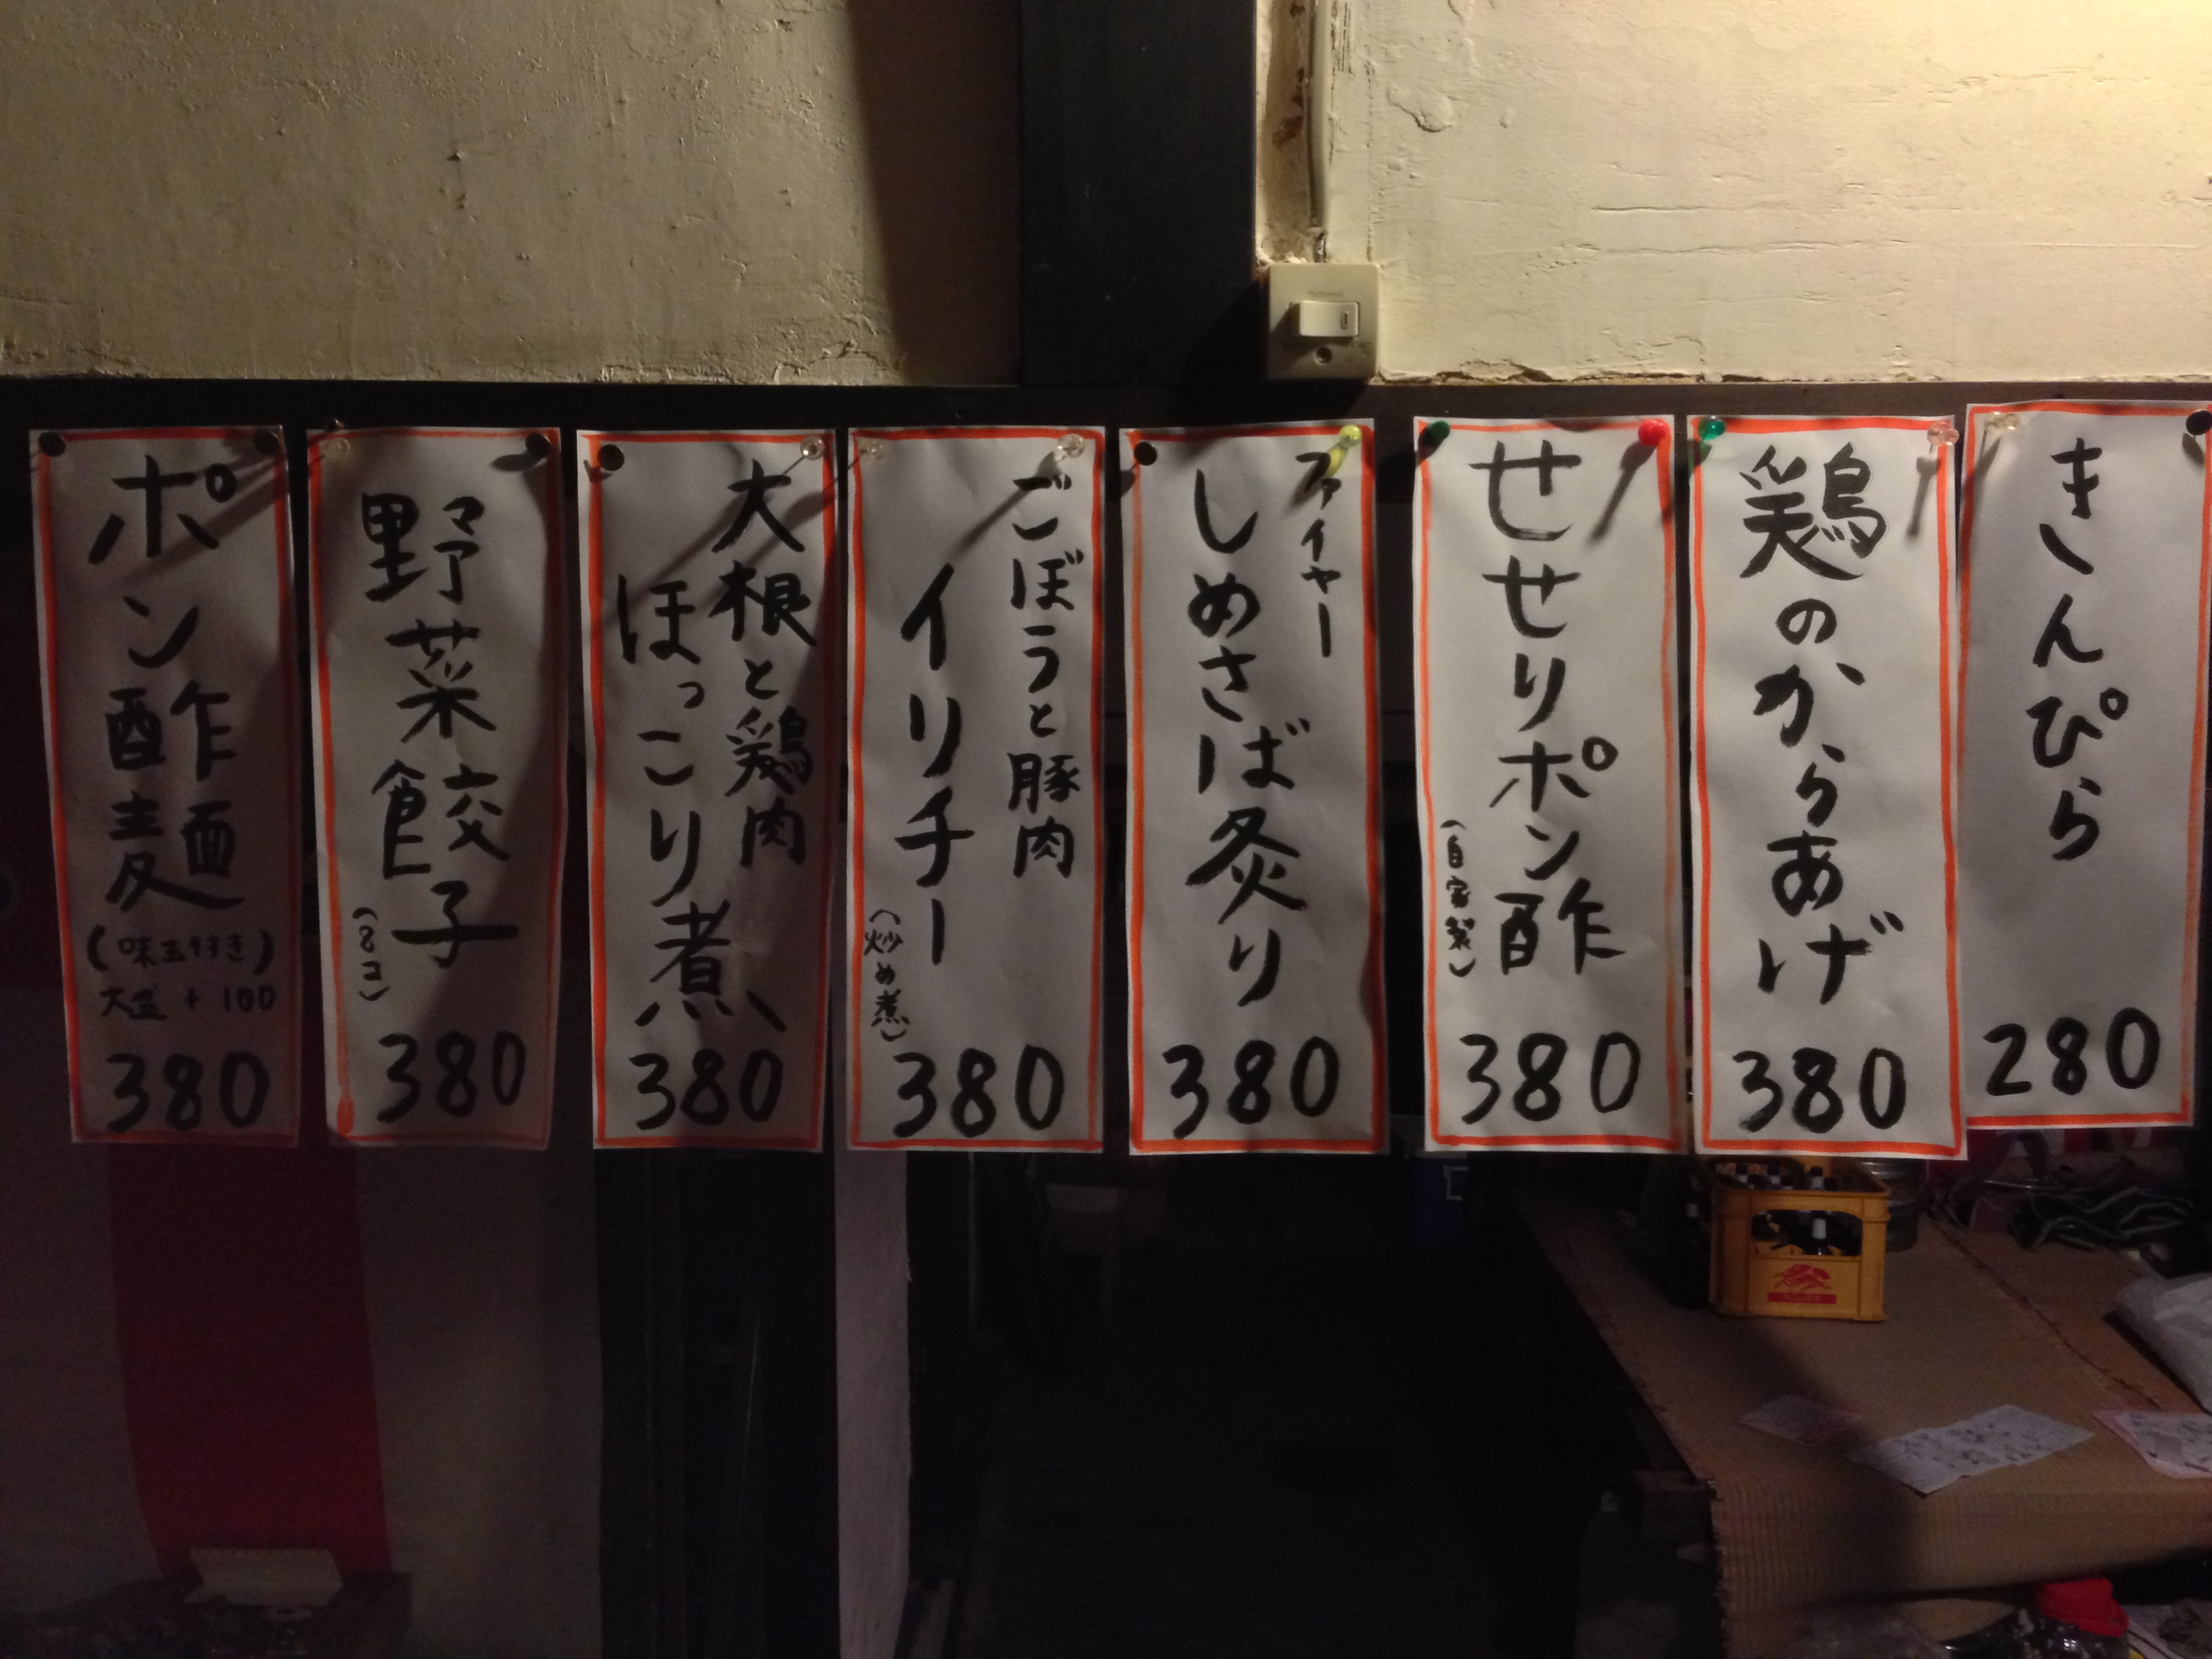 きんぴら
280
鶏のからあげ
380
せせりポン酢
(自家製)
380
ファイヤー
しめさば炙り
380
ごぼうと豚肉
イリチー
(炒め煮)
380
大根と鶏肉
ほっこり煮
380
野菜餃子
(8コ)
380
ポン酢麺
(味玉付き)
大盛+100
380